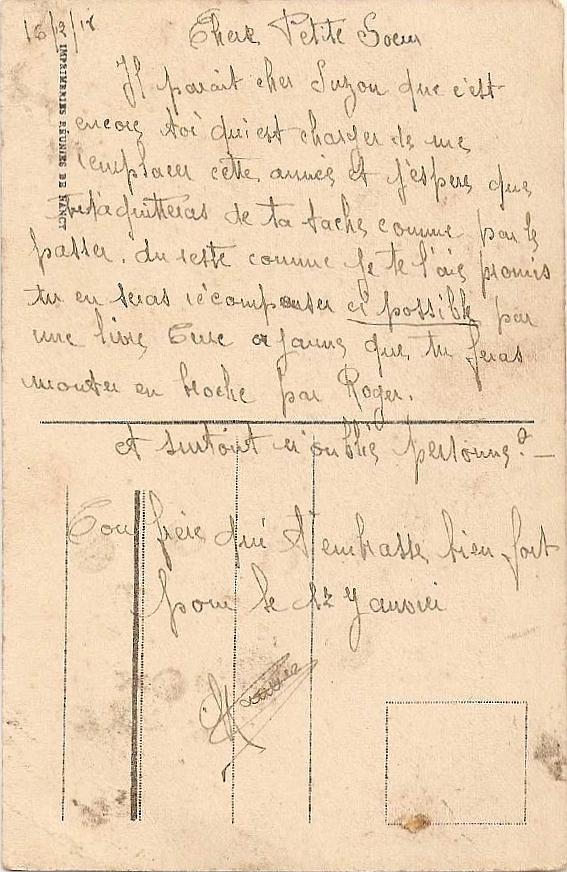 16/2/18
Chere Petite Soeur
Il parait cher Suzon que c'est
encore toi qui est charger de me
remplacer cette année et j'espere que
t'aquitteras de ta tache comme par le
passer, du reste comme je te l'ais promis
tu en seras récompenser si possible par
une livre Turc a jaune que tu feras
monter en broche par Roger.
et surtout n'oublie personne? —
Ton frère qui t'embrasse bien fort
pour le 1er Janvier
IMPRIMERIES RÉUNIES DE NANCY